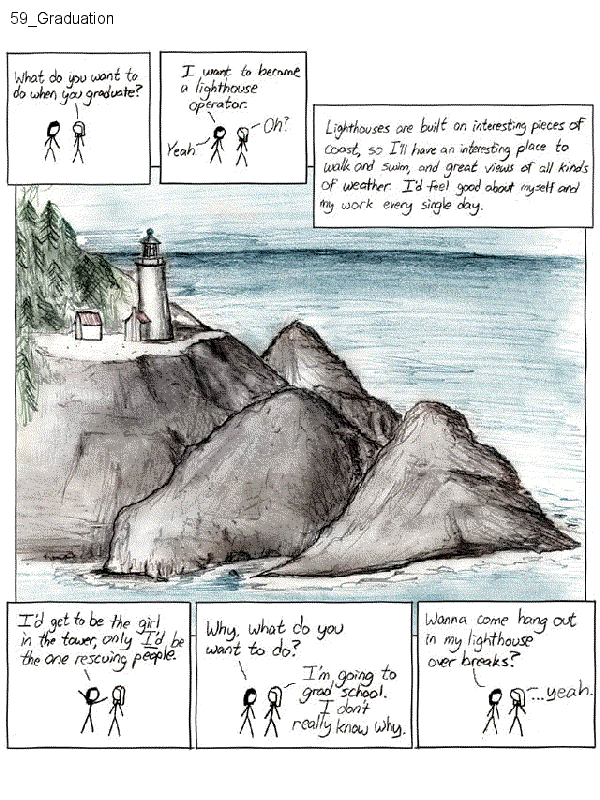 59_Graduation
What do you want to
do when you graduate?
I want to become
a lighthouse
operator.
Oh?
Yeah.
Lighthouses are built on interesting pieces of
coast, so I'll have an interesting place to
walk and swim, and great views of all kinds
of weather. I'd feel good about myself and
my work every single day.
I'd get to be the girl
in the tower, only I'd be
the one rescuing people.
Why, what do you
want to do?
I'm going to
grad school.
I don't
really know why.
Wanna come hang out
in my lighthouse
over breaks?
...yeah.